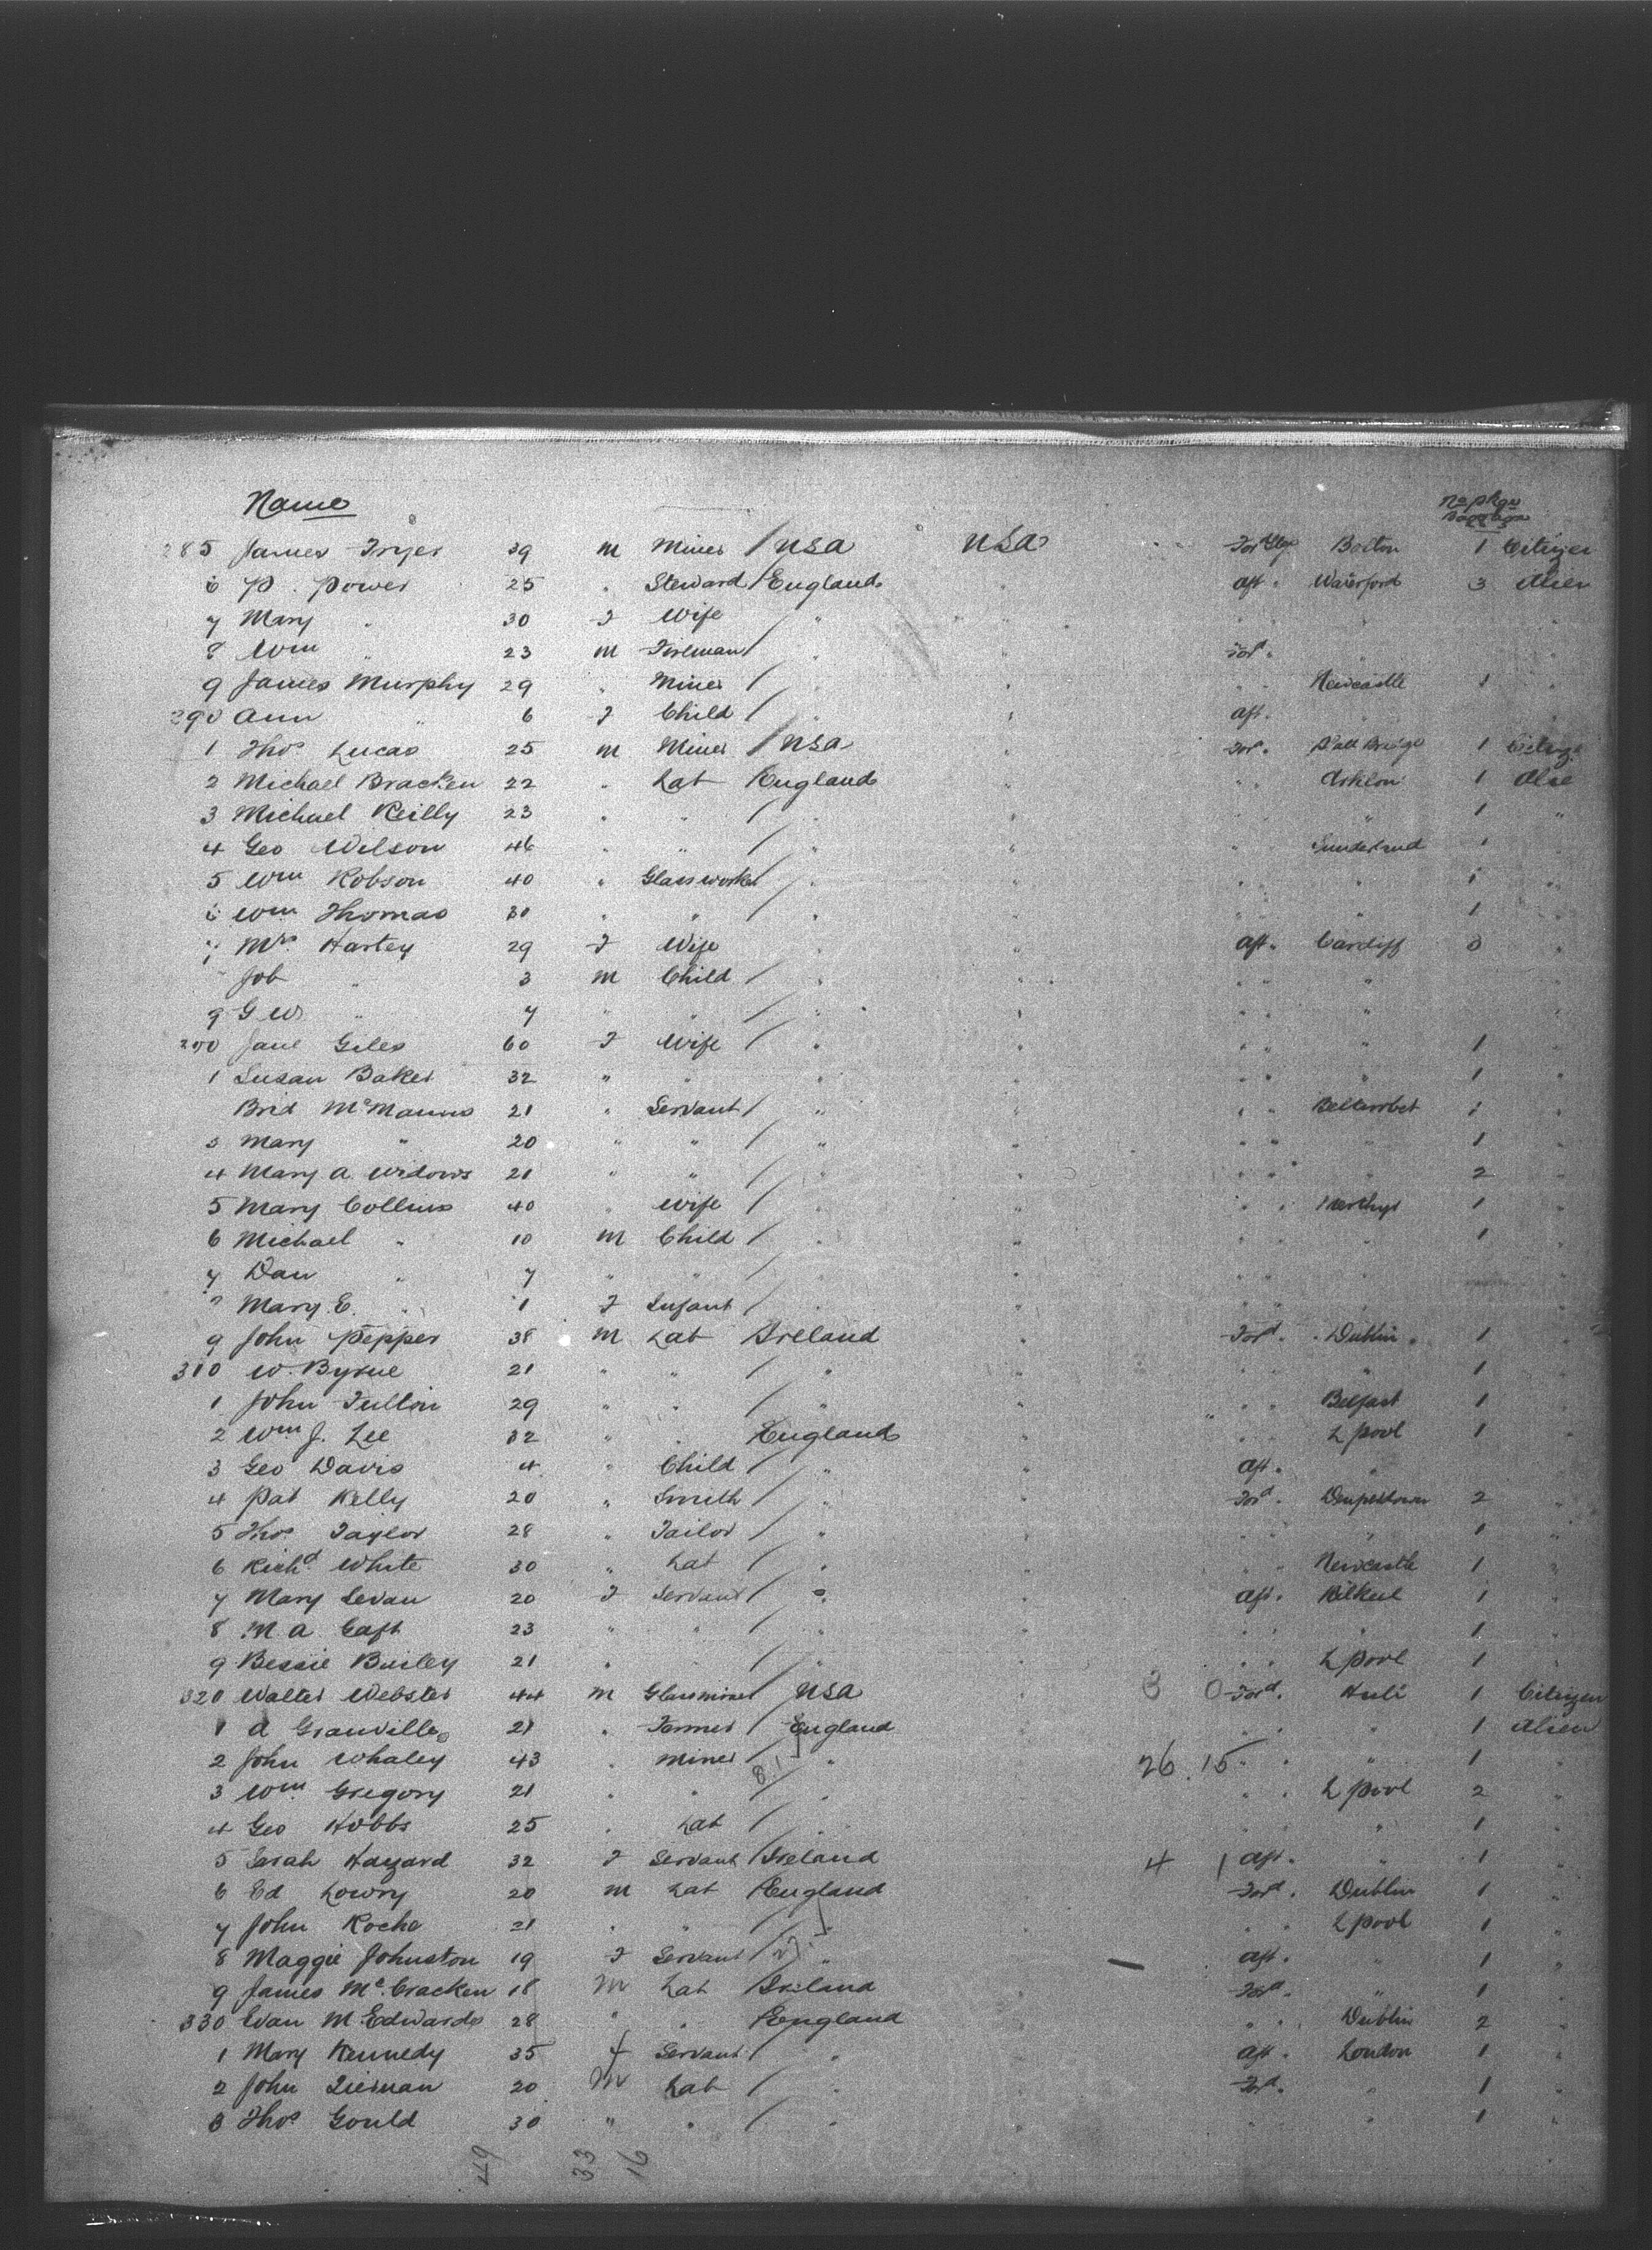 Name No pkgs Baggage
285 James Fryer 39 m Miner / USA USA For Stge Bolton 1 Citizen
6 P. Power 25 " Steward / England " aft " Waterford 3 Alien
7 Mary " 30 F Wife / " " " " "
8 Wm " 23 m Fireman / " " For'd "
9 James Murphy 29 " Miner / " " " " Newcastle 1 "
290 Ann " 6 F Child / " " aft. "
1 Thos Lucas 25 m Miner / USA " For'd " 1 Citize
2 Michael Bracken 22 " Lab England " " " Ashton 1 Alie
3 Michael Reilly 23 " " / " " " " " 1 "
4 Geo Wilson 46 " " / " " " " Sunderland 1 "
5 Wm Robson 40 " Glassworker / " " " " " 1 "
6 Wm Thomas 30 " " / " " " " " 1 "
7 Mrs Hartey 29 F Wife / " " aft. Cardiff 3 "
Job " 3 m Child / " " " " "
9 G W. " 7 " " / " " " " "
300 Jane Giles 60 F Wife / " " " " " 1 "
1 Susan Baker 32 " " " " " " " 1 "
Brid McManus 21 " Servant / " " " " Belturbet 1 "
3 Mary " 20 " " / " " " " " 1 "
4 Mary A. Widows 21 " " / " " " " " 2 "
5 Mary Collins 40 " Wife / " " " " Merthyr 1 "
6 Michael " 10 m Child / " " " " " 1 "
7 Dan " 7 " " / " " " "
Mary E. " 1 F Infant / " " " "
9 John Pepper 38 m Lab Ireland " For'd. Dublin 1 "
310 W. Byrne 21 " " / " " " " " 1 "
1 John Fulton 29 " " / " " " " Belfast 1 "
2 Wm J. Lee 32 " " England " " " L pool 1 "
3 Geo Davis 4 " Child / " " aft. "
4 Pat Kelly 20 " Smith / " " For'd. 2 "
5 Thos Taylor 28 " Tailor / " " " " " 1 "
6 Richd White 30 " Lab / " " " " Newcastle 1 "
7 Mary Levan 20 F Servant / " " aft. Kilkeel 1 "
8 M A Caft 23 " " / " " " " " 1 "
9 Bessie Bailey 21 " " / " " " " L pool 1 "
320 Walter Webster 44 m / USA " 3 0 For'd. Hull 1 Citizen
1 A Granville 21 " Farmer / England " " " 1 Alien
2 John Whaley 43 " Miner / " 26.15 " " " 1 "
3 Wm Gregory 21 " " 81 / " " " L pool 2 "
4 Geo Hobbs 25 " Lab / " " " " 1 "
5 Sarah Hazard 32 F Servant / Ireland 4 1 aft. " 1 "
6 Ed Lowry 20 m Lab / England For'd. Dublin 1 "
7 John Roche 21 " " / " " " " L pool 1 "
8 Maggie Johnston 19 F Servant / " — aft. " 1 "
9 James McCracken 18 m Lab Ireland " For'd. " 1 "
330 Evan M. Edwards 28 " " / England " " " Dublin 2 "
1 Mary Kennedy 35 f Servant / " " aft. London 1 "
2 John 20 m Lab / " " For'd. " 1 "
3 Thos. Gould 30 " " / " " " " 1 "
49 33 16